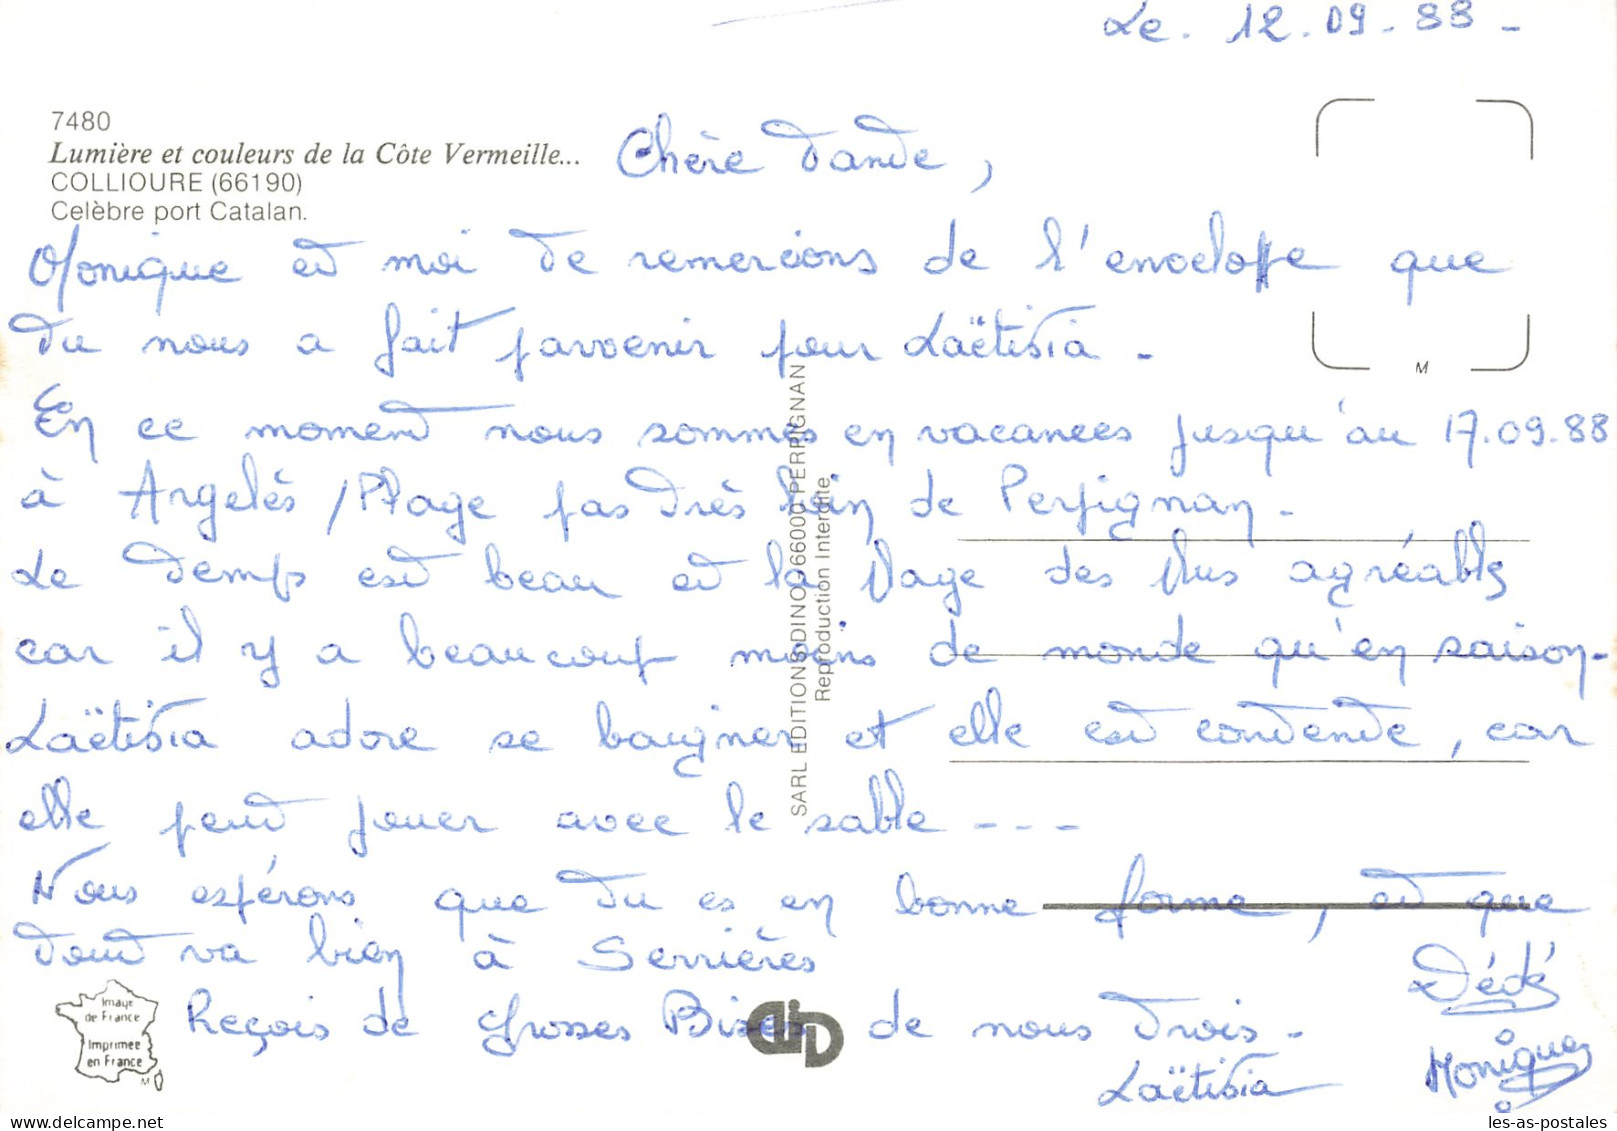 Le. 12.09.88 -
7480
Lumière et couleurs de la Côte Vermeille...
COLLIOURE (66190)
Celèbre port Catalan.
Chère Tante,
Monique et moi te remercions de l'enveloppe que
tu nous a fait parvenir pour Laëtitia -
En ce moment nous sommes en vacances jusqu'au 17.09.88
à Argelès / Plage pas très loin de Perpignan -
Le temps est beau et la plage des plus agréable
car il y a beaucoup moins de monde qu'en saison -
Laëtitia adore se baigner et elle est contente, car
elle peut jouer avec le sable - - -
Nous espérons que tu es en bonne forme, et que
tout va bien à Serrières
Reçois de grosses Bises de nous trois -
Dédé
Laëtitia
Monique
SARL EDITIONS DINO 66000 PERPIGNAN
Reproduction Interdite
M
Image
de France
Imprimée
en France
M
DINO
les-as-postales